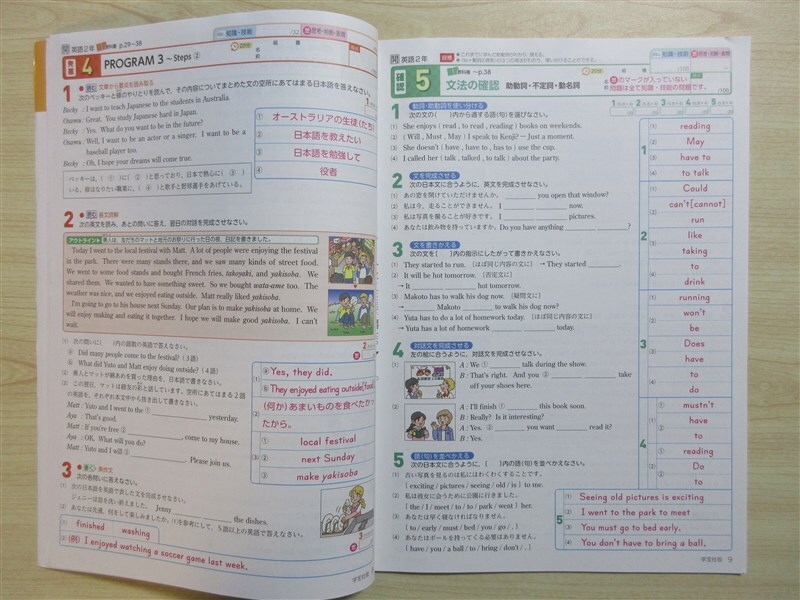 英語2年
教科書 p.29~38
知識・技能
思考・判断・表現
発展
4 PROGRAM 3 ~Steps ②
1 読む 文章から要点を読み取る
Becky : I want to teach Japanese to the students in Australia.
Osawa : Great. You study Japanese hard in Japan.
Becky : Yes. What do you want to be in the future?
Osawa : Well, I want to be an actor or a singer. I want to be a
baseball player too.
Becky : Oh, I hope your dreams will come true.
① オーストラリアの生徒(たち)
② 日本語を教えたい
③ 日本語を勉強して
④ 役者
2 読む 長文読解
次の英文を読み、あとの問いに答え、翌日の対話を完成させなさい。
アウトライン
Today I went to the local festival with Matt. A lot of people were enjoying the festival
in the park. There were many stands there, and we saw many kinds of street food.
We went to some food stands and bought French fries, takoyaki, and yakisoba. We
shared them. We wanted to have something sweet. So we bought wata-ame too. The
weather was nice, and we enjoyed eating outside. Matt really liked yakisoba.
I'm going to go to his house next Sunday. Our plan is to make yakisoba at home. We
will enjoy making and eating it together. I hope we will make good yakisoba. I can't
wait.
(1) 次の問いに( )内の語数の英語で答えなさい。
ⓐ Did many people come to the festival? (3語)
ⓑ What did Yuto and Matt enjoy doing outside? (4語)
Matt : Yuto and I went to the ① yesterday.
Aya : That's good.
Matt : If you're free ② , come to my house.
Aya : OK. What will you do?
Matt : Yuto and I will ③ . Please join us.
(1) ⓐ Yes, they did.
ⓑ They enjoyed eating outside[food
(2) (何か)あまいものを食べたかっ
たから。
(3) ① local festival
② next Sunday
③ make yakisoba
3 書く 英作文
次の各問いに答えなさい。
(1) 次の日本語を英語で表した文を完成させなさい。
ジェニーは皿を洗い終えました。 Jenny the dishes.
(1) finished washing
(2) (例) I enjoyed watching a soccer game last week.
英語2年
教科書 ~p.38
知識・技能
思考・判断・表現
/100
確認
5 文法の確認 助動詞・不定詞・動名詞
のマークが入っていない
問題は全て知識・技能の問題です。
1 動詞・助動詞を使い分ける
次の文の( )内から適する語(句)を選びなさい。
(1) She enjoys ( read , to read , reading ) books on weekends.
(2) ( Will , Must , May ) I speak to Kenji? — Just a moment.
(3) She doesn't ( have , have to , has to ) use the cup.
(4) I called her ( talk , talked , to talk ) about the party.
2 文を完成させる
次の日本文に合うように、英文を完成させなさい。
(1) あの窓を開けていただけませんか。 you open that window?
(2) 私は今、走ることができません。 I now.
(3) 私は写真を撮ることが好きです。 I pictures.
(4) あなたは飲み物を持っていますか。 Do you have anything ?
3 文を書きかえる
次の文を[ ]内の指示にしたがって書きかえなさい。
(1) They started to run. [ほぼ同じ内容の文に] → They started .
(2) It will be hot tomorrow. [否定文に]
→ It hot tomorrow.
(3) Makoto has to walk his dog now. [疑問文に]
→ Makoto to walk his dog now?
(4) Yuta has to do a lot of homework today. [ほぼ同じ内容の文に]
→ Yuta has a lot of homework today.
4 対話文を完成させる
左の絵に合うように、対話文を完成させなさい。
(1) A : We ① talk during the show.
B : That's right. And you ② take
off your shoes here.
(2) A : I'll finish ① this book soon.
B : Really? Is it interesting?
A : Yes. ② you want read it?
B : Yes.
5 語(句)を並べかえる
次の日本文に合うように、( )内の語(句)を並べかえなさい。
(1) 古い写真を見るのは私にはわくわくすることです。
( exciting / pictures / seeing / old / is ) to me.
(2) 私は彼女に会うために公園に行きました。
( the / I / meet / to / to / park / went ) her.
(3) あなたは早く寝なければなりません。
( to / early / must / bed / you / go / . )
(4) あなたはボールを持ってくる必要はありません。
( have / you / a ball / to / bring / don't / . )
1
(1) reading
(2) May
(3) have to
(4) to talk
2
(1) Could
(2) can't[cannot]
run
(3) like
taking
(4) to
drink
3
(1) running
(2) won't
be
(3) Does
have
(4) to
do
4
(1) ① mustn't
② have
to
(2) ① reading
② Do
to
5
(1) Seeing old pictures is exciting
(2) I went to the park to meet
(3) You must go to bed early.
(4) You don't have to bring a ball.
学宝社版 9